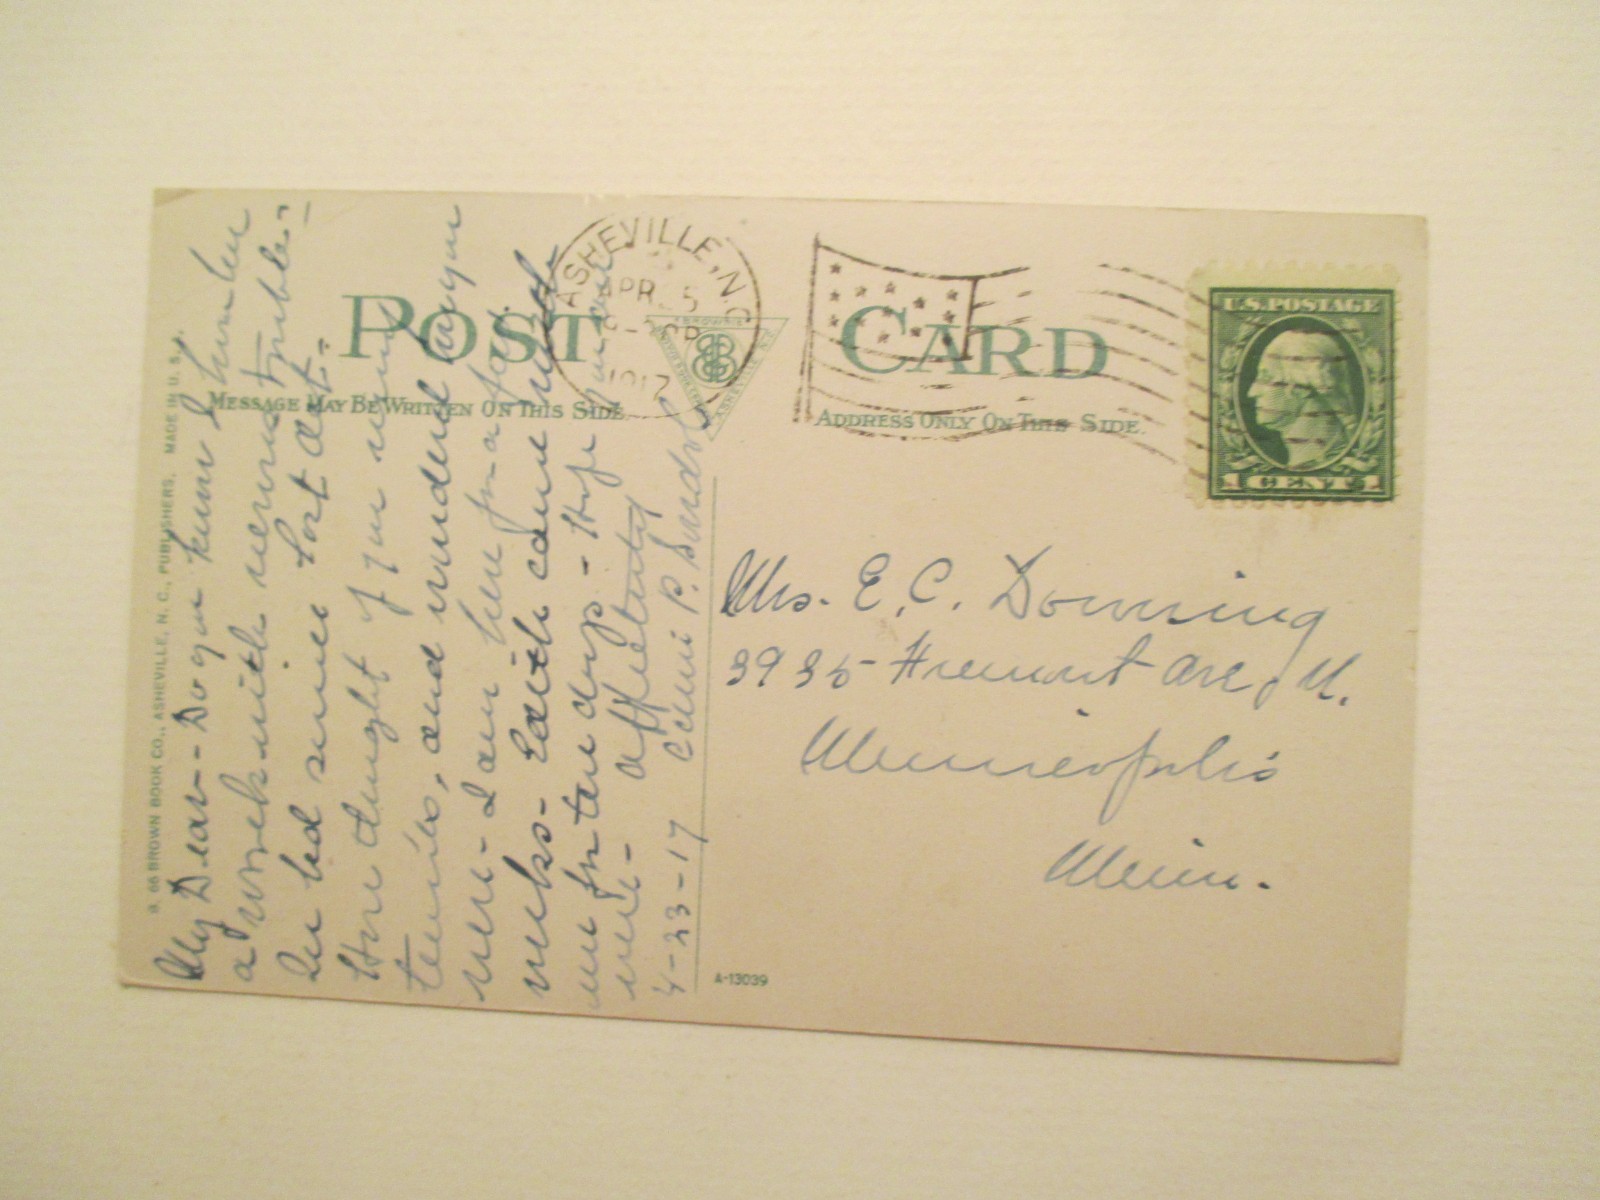 POST CARD
MESSAGE MAY BE WRITTEN ON THIS SIDE.
ADDRESS ONLY ON THIS SIDE.
ASHEVILLE, N.C.
APR 5
1917
U.S. POSTAGE
1 CENT 1
BROWN BOOK CO., ASHEVILLE, N. C., PUBLISHERS. MADE IN U. S. A.
My Dear - Do you know I have been
a week with nervous trouble -
In bed since last Oct.
Have thought of you many
times, and wondered how you
were - I am here for a few
weeks - Edith came with
me for ten days - Hope you are
well - Affectionately
4-23-17
Mrs. E. C. Downing
3935 Fremont Ave. N.
Minneapolis
Minn.
A-13039